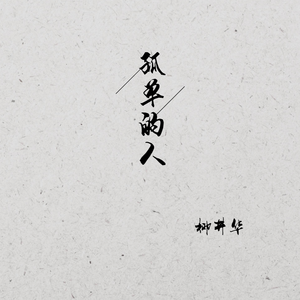 孤单的人
柳井华